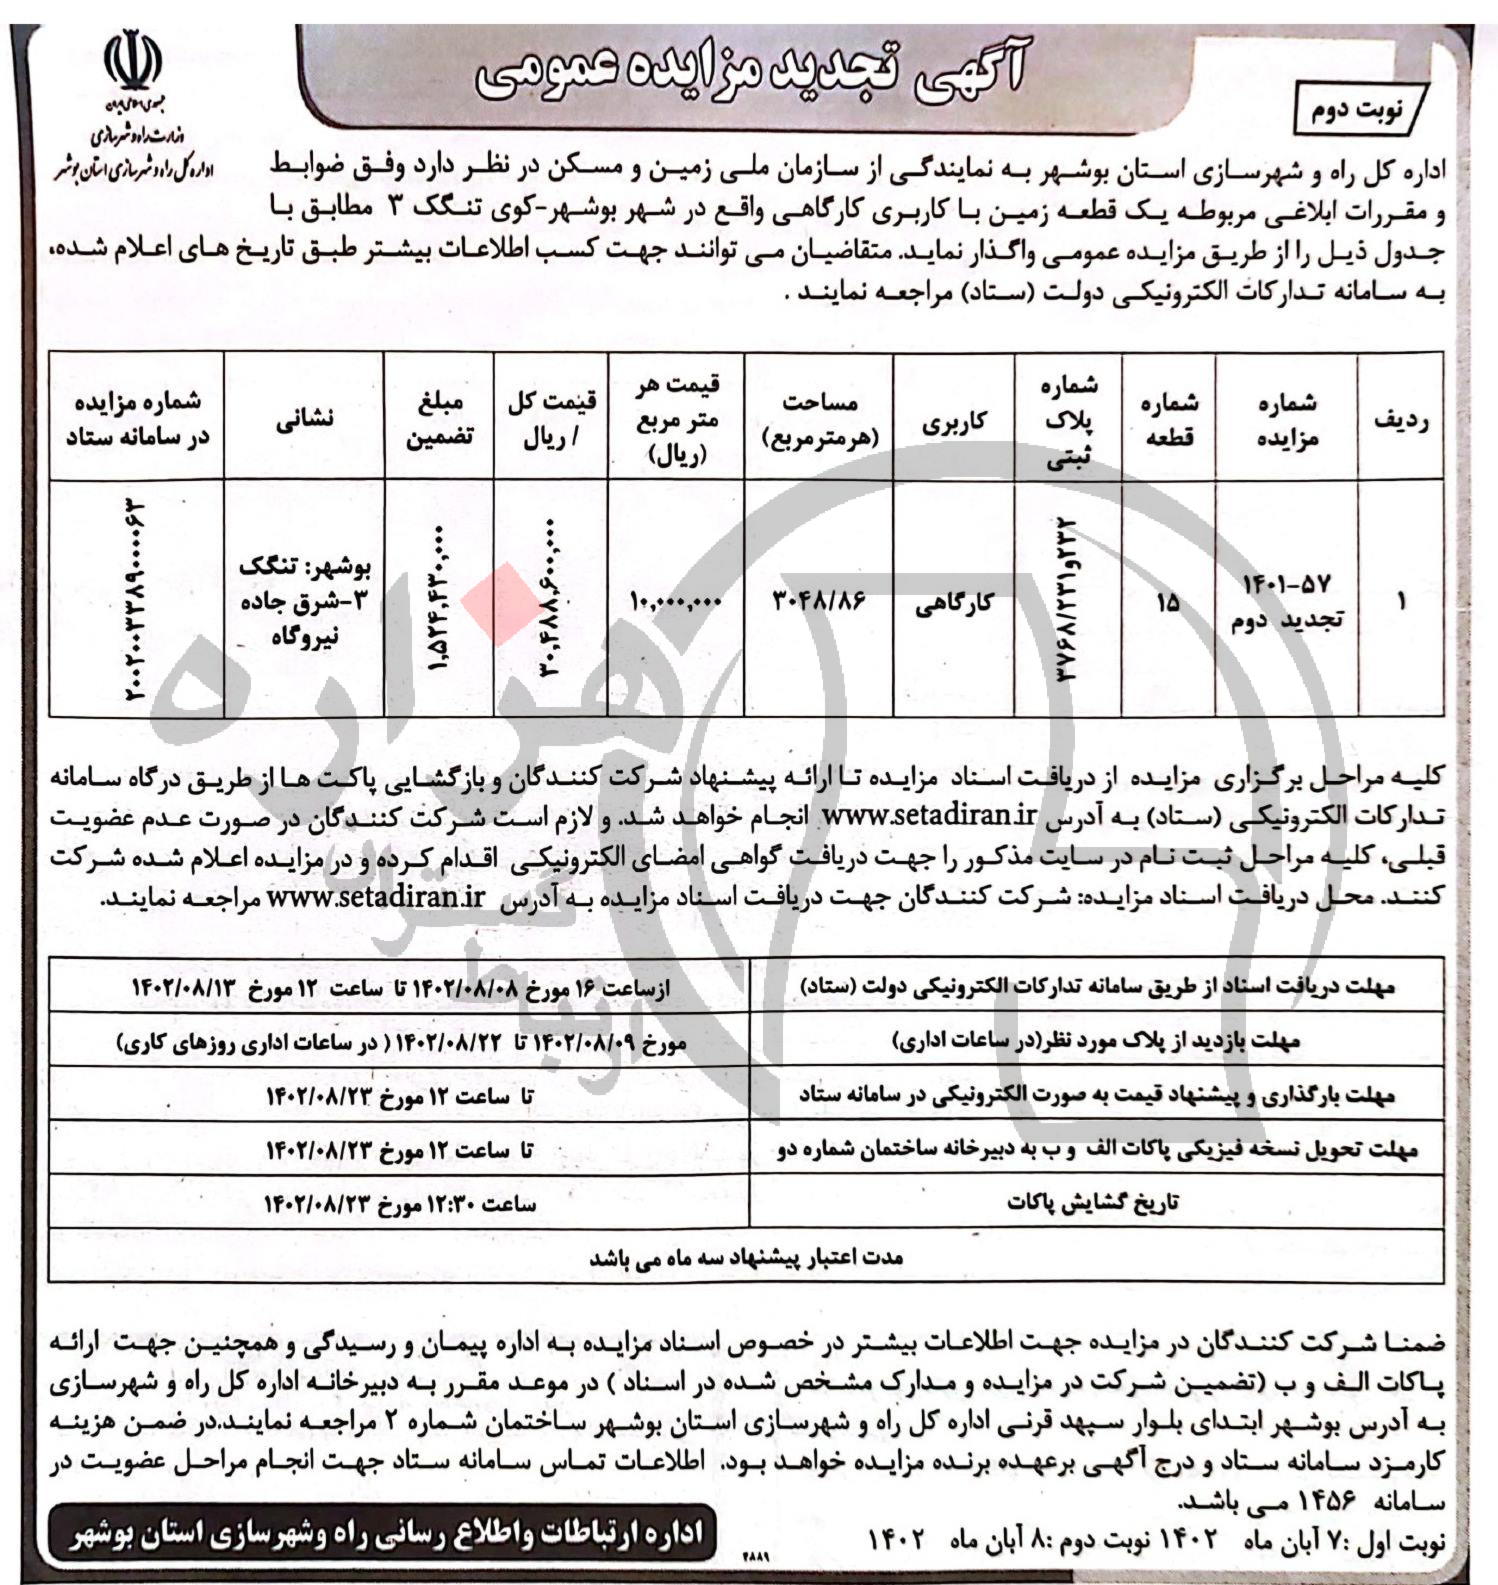 آگهی تجدید مزایده عمومی
نوبت دوم
جمهوری اسلامی ایران
وزارت راه و شهرسازی
اداره کل راه و شهرسازی استان بوشهر
اداره کل راه و شهرسازی استان بوشهر به نمایندگی از سازمان ملی زمین و مسکن در نظر دارد وفق ضوابط
و مقررات ابلاغی مربوطه یک قطعه زمین با کاربری کارگاهی واقع در شهر بوشهر-کوی تنگک ۳ مطابق با
جدول ذیل را از طریق مزایده عمومی واگذار نماید. متقاضیان می توانند جهت کسب اطلاعات بیشتر طبق تاریخ های اعلام شده،
به سامانه تدارکات الکترونیکی دولت (ستاد) مراجعه نمایند .
ردیف
شماره
مزایده
شماره
قطعه
شماره
پلاک
ثبتی
کاربری
مساحت
(هرمترمربع)
قیمت هر
متر مربع
(ریال)
قیمت کل
/ ریال
مبلغ
تضمین
نشانی
شماره مزایده
در سامانه ستاد
۱
۱۴۰۱-۵۷
تجدید دوم
۱۵
۳۷۶۸/۲۳۱و۲۳۲
کارگاهی
۳۰۴۸/۸۶
۱۰,۰۰۰,۰۰۰
۳۰,۴۸۸,۶۰۰,۰۰۰
۱,۵۲۴,۴۳۰,۰۰۰
بوشهر: تنگک
۳-شرق جاده
نیروگاه
۲۰۰۲۰۰۳۳۸۹۰۰۰۰۶۳
کلیه مراحل برگزاری مزایده از دریافت اسناد مزایده تا ارائه پیشنهاد شرکت کنندگان و بازگشایی پاکت ها از طریق درگاه سامانه
تدارکات الکترونیکی (ستاد) به آدرس www.setadiran.ir انجام خواهد شد. و لازم است شرکت کنندگان در صورت عدم عضویت
قبلی، کلیه مراحل ثبت نام در سایت مذکور را جهت دریافت گواهی امضای الکترونیکی اقدام کرده و در مزایده اعلام شده شرکت
کنند. محل دریافت اسناد مزایده: شرکت کنندگان جهت دریافت اسناد مزایده به آدرس www.setadiran.ir مراجعه نمایند.
مهلت دریافت اسناد از طریق سامانه تدارکات الکترونیکی دولت (ستاد)
ازساعت ۱۶ مورخ ۱۴۰۲/۰۸/۰۸ تا ساعت ۱۲ مورخ ۱۴۰۲/۰۸/۱۳
مهلت بازدید از پلاک مورد نظر(در ساعات اداری)
مورخ ۱۴۰۲/۰۸/۰۹ تا ۱۴۰۲/۰۸/۲۲ ( در ساعات اداری روزهای کاری)
مهلت بارگذاری و پیشنهاد قیمت به صورت الکترونیکی در سامانه ستاد
تا ساعت ۱۲ مورخ ۱۴۰۲/۰۸/۲۳
مهلت تحویل نسخه فیزیکی پاکات الف و ب به دبیرخانه ساختمان شماره دو
تا ساعت ۱۲ مورخ ۱۴۰۲/۰۸/۲۳
تاریخ گشایش پاکات
ساعت ۱۲:۳۰ مورخ ۱۴۰۲/۰۸/۲۳
مدت اعتبار پیشنهاد سه ماه می باشد
ضمنا شرکت کنندگان در مزایده جهت اطلاعات بیشتر در خصوص اسناد مزایده به اداره پیمان و رسیدگی و همچنین جهت ارائه
پاکات الف و ب (تضمین شرکت در مزایده و مدارک مشخص شده در اسناد ) در موعد مقرر به دبیرخانه اداره کل راه و شهرسازی
به آدرس بوشهر ابتدای بلوار سپهد قرنی اداره کل راه و شهرسازی استان بوشهر ساختمان شماره ۲ مراجعه نمایند،در ضمن هزینه
کارمزد سامانه ستاد و درج آگهی برعهده برنده مزایده خواهد بود. اطلاعات تماس سامانه ستاد جهت انجام مراحل عضویت در
سامانه ۱۴۵۶ می باشد.
نوبت اول :۷ آبان ماه ۱۴۰۲ نوبت دوم :۸ آبان ماه ۱۴۰۲
۲۸۸۹
اداره ارتباطات واطلاع رسانی راه وشهرسازی استان بوشهر
هزاره